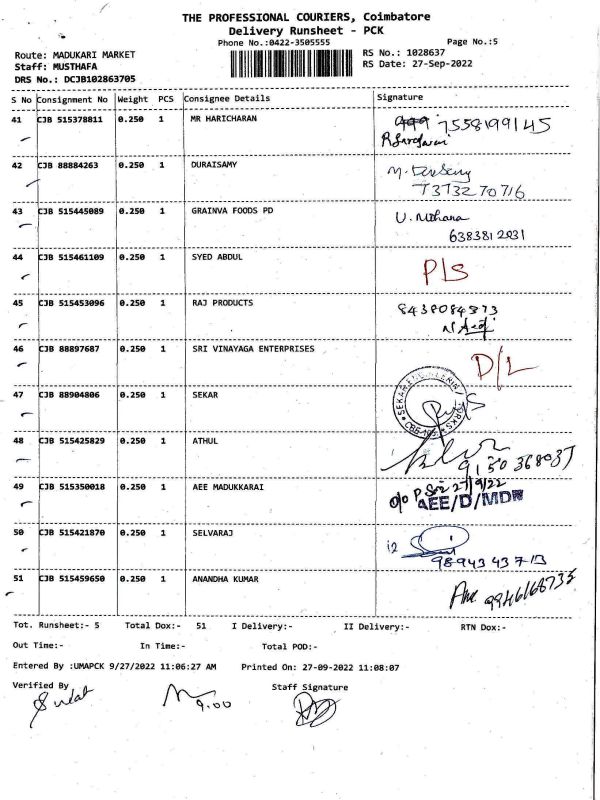 THE PROFESSIONAL COURIERS, Coimbatore
Delivery Runsheet - PCK
Phone No.:0422-3505555 Page No.:5
Route: MADUKARI MARKET RS No.: 1028637
Staff: MUSTHAFA RS Date: 27-Sep-2022
DRS No.: DCJB102863705
S No Consignment No Weight PCS Consignee Details Signature
41 CJB 515378811 0.250 1 MR HARICHARAN 7558199145
42 CJB 88884263 0.250 1 DURAISAMY
7373270716
43 CJB 515445089 0.250 1 GRAINVA FOODS PD
6383812031
44 CJB 515461109 0.250 1 SYED ABDUL P/S
45 CJB 515453096 0.250 1 RAJ PRODUCTS 8438084373
46 CJB 88897687 0.250 1 SRI VINAYAGA ENTERPRISES D/L
47 CJB 88904806 0.250 1 SEKAR
48 CJB 515425829 0.250 1 ATHUL
49 CJB 515350018 0.250 1 AEE MADUKKARAI 27/9/22
AEE/D/MDK
50 CJB 515421870 0.250 1 SELVARAJ
9894343713
51 CJB 515459650 0.250 1 ANANDHA KUMAR
Tot. Runsheet:- 5 Total Dox:- 51 I Delivery:- II Delivery:- RTN Dox:-
Out Time:- In Time:- Total POD:-
Entered By :UMAPCK 9/27/2022 11:06:27 AM Printed On: 27-09-2022 11:08:07
Verified By Staff Signature
9.00